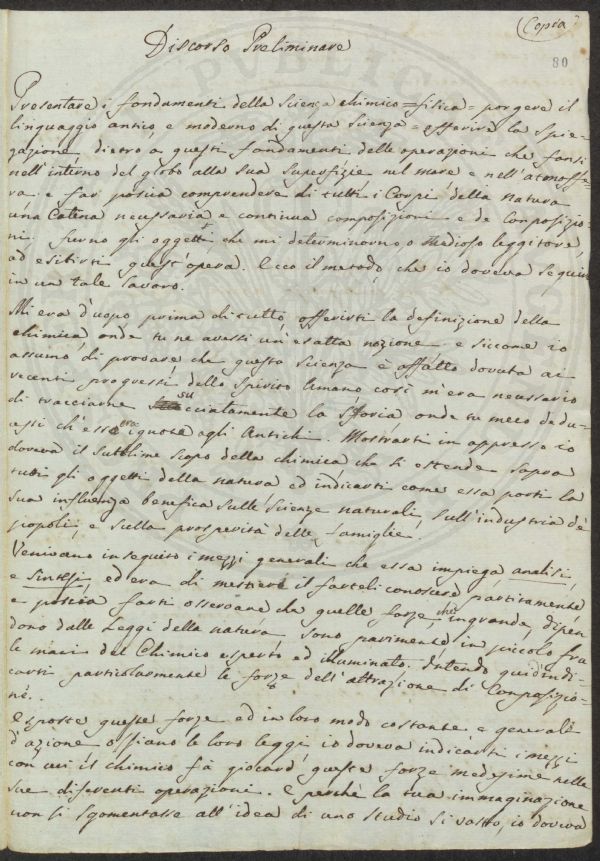 (Copia)
80
Discorso Preliminare
Presentare i fondamenti della Scienza chimico=fisica= porgere il
linguaggio antico e moderno di questa Scienza= offerire la spie-
gazione, dietro a questi fondamenti delle operazioni che fansi
nell'interno del globo alla sua superfizie nel mare e nell'atmosfe-
ra e far poscia comprendere di tutti i Corpi della Natura
una Catina necessaria e continua composizioni e de Composizio-
ni. furno gli oggetti che mi determinorno o studioso leggitore,
ad esibirti quest'opera. Ecco il metodo che io doveva seguire
in un tale lavoro.
Mi era d'uopo prima di tutto offerirti la definizione della
chimica onde tu ne avessi un'esatta nozione e siccome io
assumo di provare che questa scienza è affatto dovuta ai
recenti progressi dello Spirito Umano così m'era necessario
di tracciarne succiatamente la Storia onde tu meco dedu-
cessi ch'essa era ignota agli Antichi. Mostrarti in appresso io
doveva il sublime scopo della chimica che si estende sopra
tutti gli oggetti della natura ed indicarti come essa porti la
sua influenza benefica sulle Scienze naturali, sull'industria de'
popoli, e sulla prosperità delle famiglie.
Venivano in seguito i mezzi generali che essa impiega analisi,
e sintesi, ed era di mestiere il farteli conoscere partitamente
e poscia farti osservare da quelle forze, che in grande, dipen
dono dalle Leggi della natura sono parimente in piccolo fra
le mani del Chimico esperto ed illuminato. Intendo quindi indi-
carti particolarmente le forze dell'attrazione di Composizio-
ne.
Esposte queste forze ed in loro modo costante, e generale
d'azione ossiano le loro leggi io doveva indicarti i mezzi
con cui il chimico fà giocare queste forze medesime nelle
sue diferenti operazioni. e perchè la tua immaginazione
non si sgomentasse all'idea di uno studio sì vasto, io doveva